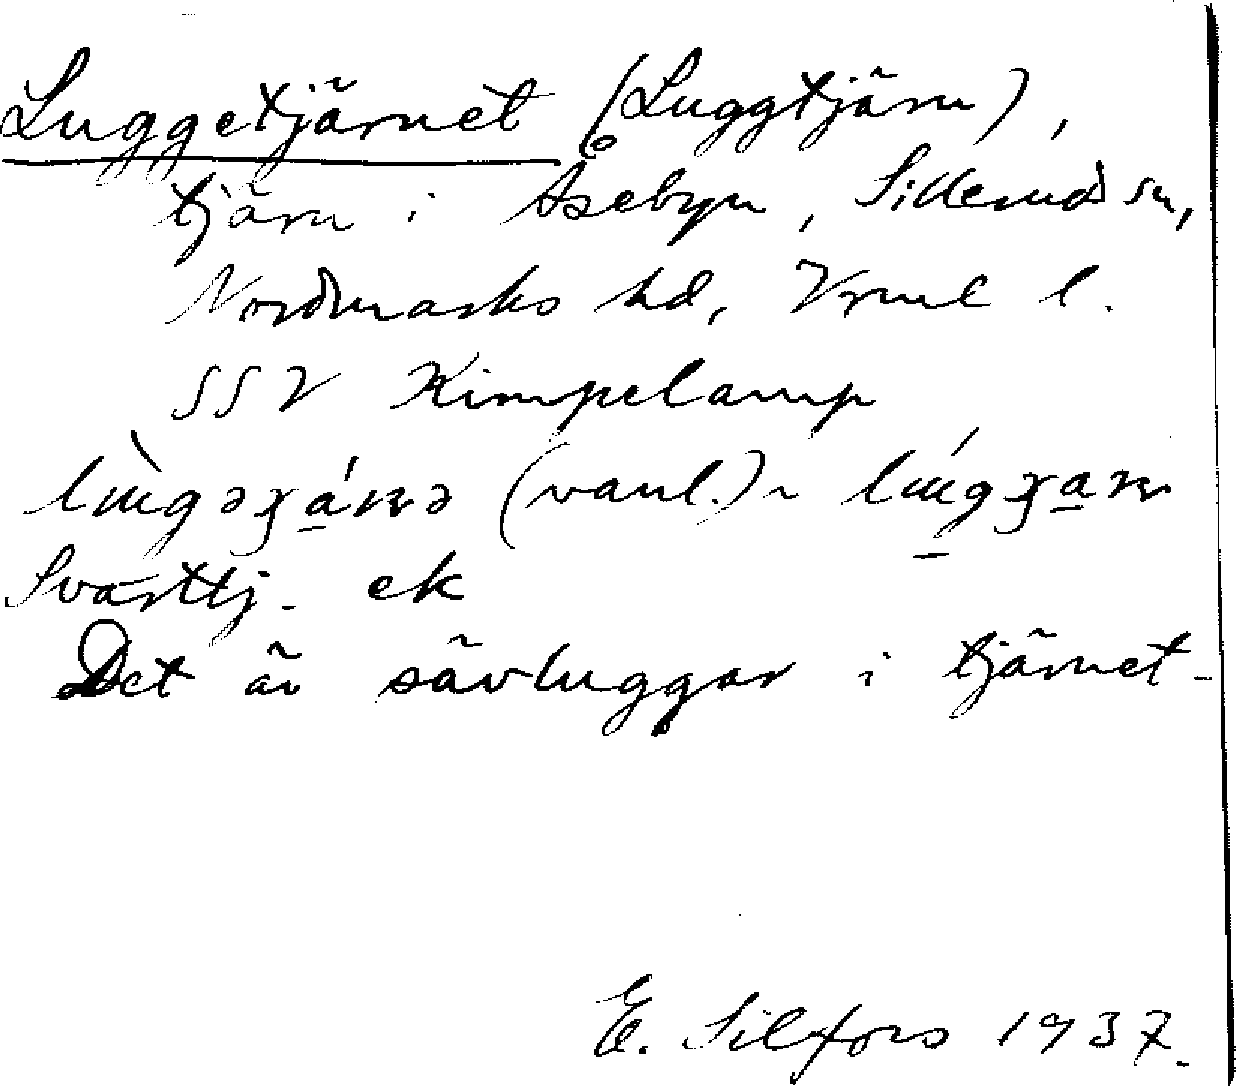 Luggetjärnet (Luggtjärn),
tjärn i Åsebyn, Silleruds sn,
Nordmarks hd, Vrml l.
SSV Kimpelamp
(vanl.) ~
Svarttj. ek
Det är sävluggar i tjärnet.
E. Silfors 1937.